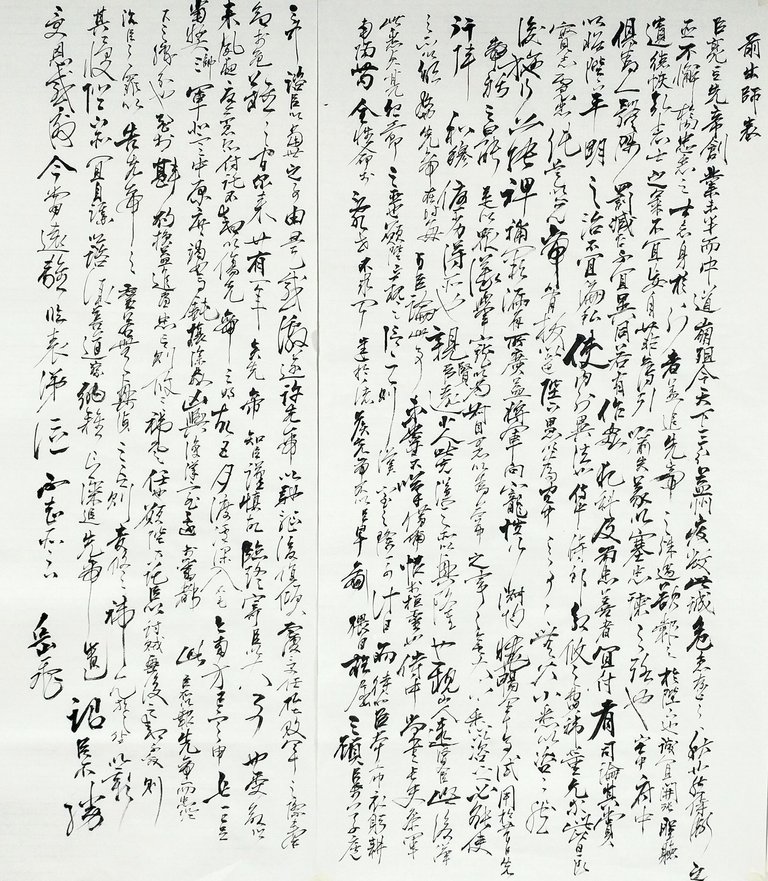 前出師表
臣亮言先帝創業未半而中道崩殂今天下三分益州疲敝此誠危急存亡之秋也然侍衛之
臣不懈於內忠志之士忘身於外者蓋追先帝之殊遇欲報之於陛下也誠宜開張聖聽
遺德恢弘志士之氣不宜妄自菲薄引喻失義以塞忠諫之路也宮中府中
俱為一體陟罰臧否不宜異同若有作奸犯科及為忠善者宜付有司論其賞
以昭陛下平明之治不宜偏私使內外異法也侍中侍郎郭攸之費禕董允等此皆良
實志慮忠純是以先帝簡拔以遺陛下愚以為宮中之事事無大小悉以咨之然
後施行必能裨補闕漏有所廣益將軍向寵性行淑均曉暢軍事試用於昔日先
帝稱之曰能是以眾議舉寵以為督愚以為營中之事事無大小悉以咨之必能使
行陣和睦優劣得所也親賢臣遠小人此先漢所以興隆也親小人遠賢臣此後漢
所以傾頹也先帝在時每與臣論此事未嘗不嘆息痛恨於桓靈也侍中尚書長史參軍
此悉貞亮死節之臣也願陛下親之信之則漢室之隆可計日而待也臣本布衣躬耕
南陽苟全性命於亂世不求聞達於諸侯先帝不以臣卑鄙猥自枉屈三顧臣於草廬
之中諮臣以當世之事由是感激遂許先帝以驅馳後值傾覆受任於敗軍之際奉命
於危難之間爾來廿有一年矣先帝知臣謹慎故臨終寄臣以大事也受命以
來夙夜憂嘆恐付託不效以傷先帝之明故五月渡瀘深入不毛今南方已定甲兵已足
當獎帥三軍北定中原庶竭駑鈍攘除奸凶興復漢室還於舊都此臣所以報先帝而忠陛
下之職分也至於斟酌損益進盡忠言則攸之禕允之任願陛下託臣以討賊興復之效不效則
治臣之罪以告先帝之靈若無興德之言則責攸之禕允等咎以彰
其慢陛下亦宜自謀以諮諏善道察納雅言深追先帝遺詔臣不勝
受恩感激今當遠離臨表涕泣不知所云岳飛